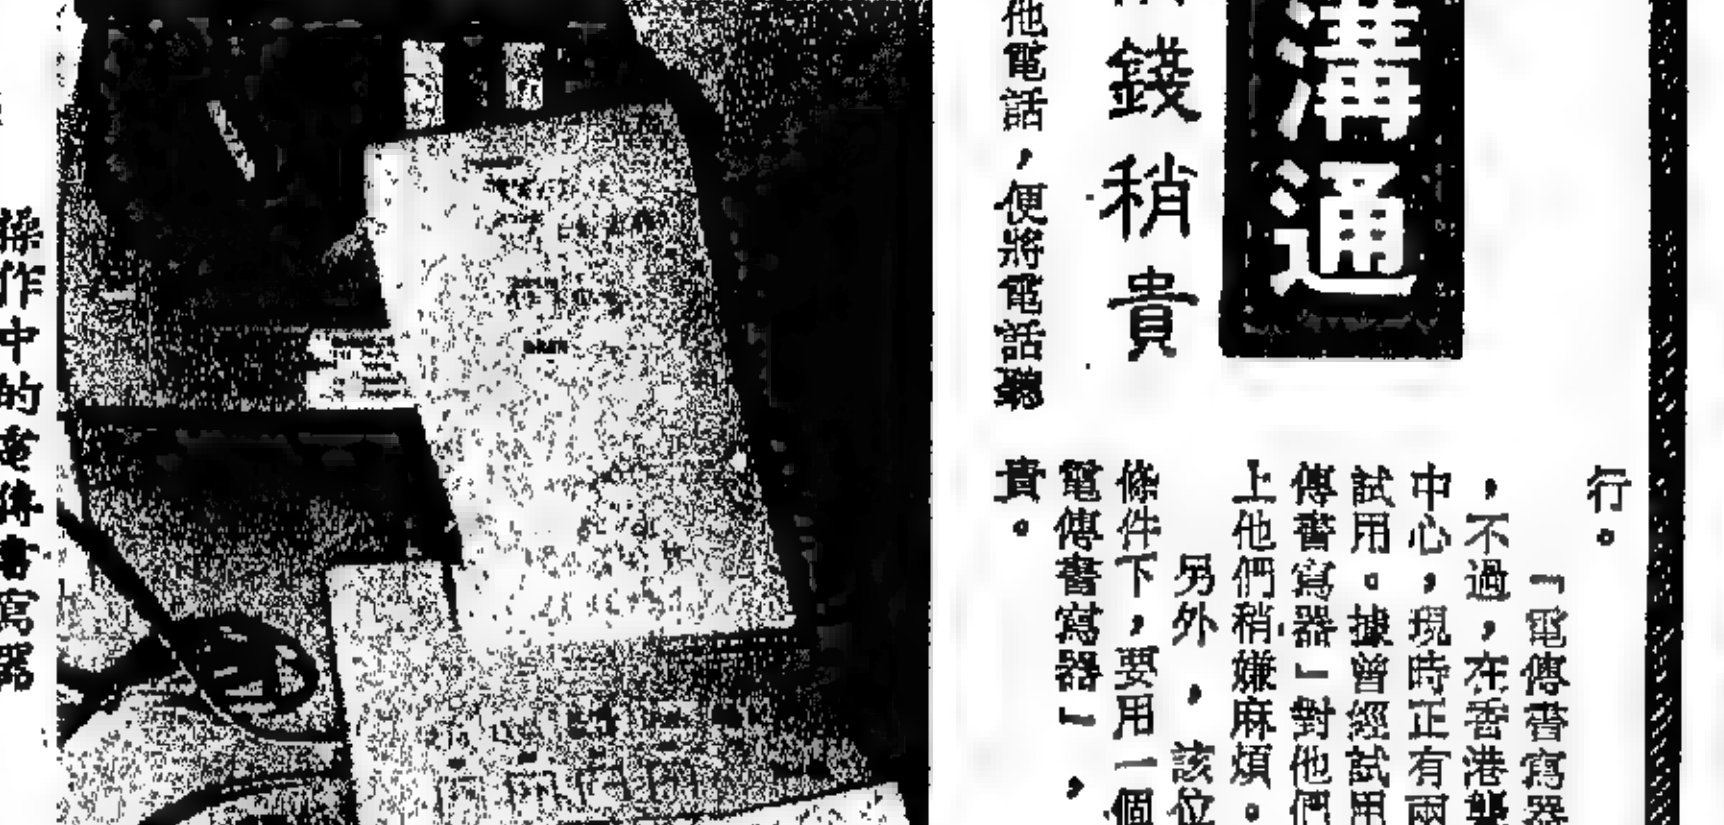 溝通
錢稍貴
他電話，便將電話聽
行。
「電傳書寫器
，不過，在香港聾
中心，現時正有兩
試用。據曾經試用
傳書寫器」對他們
上他們稍嫌麻煩。
另外，該位
條件下，要用一個
電傳書寫器」，
貴。
操作中的電傳書寫器